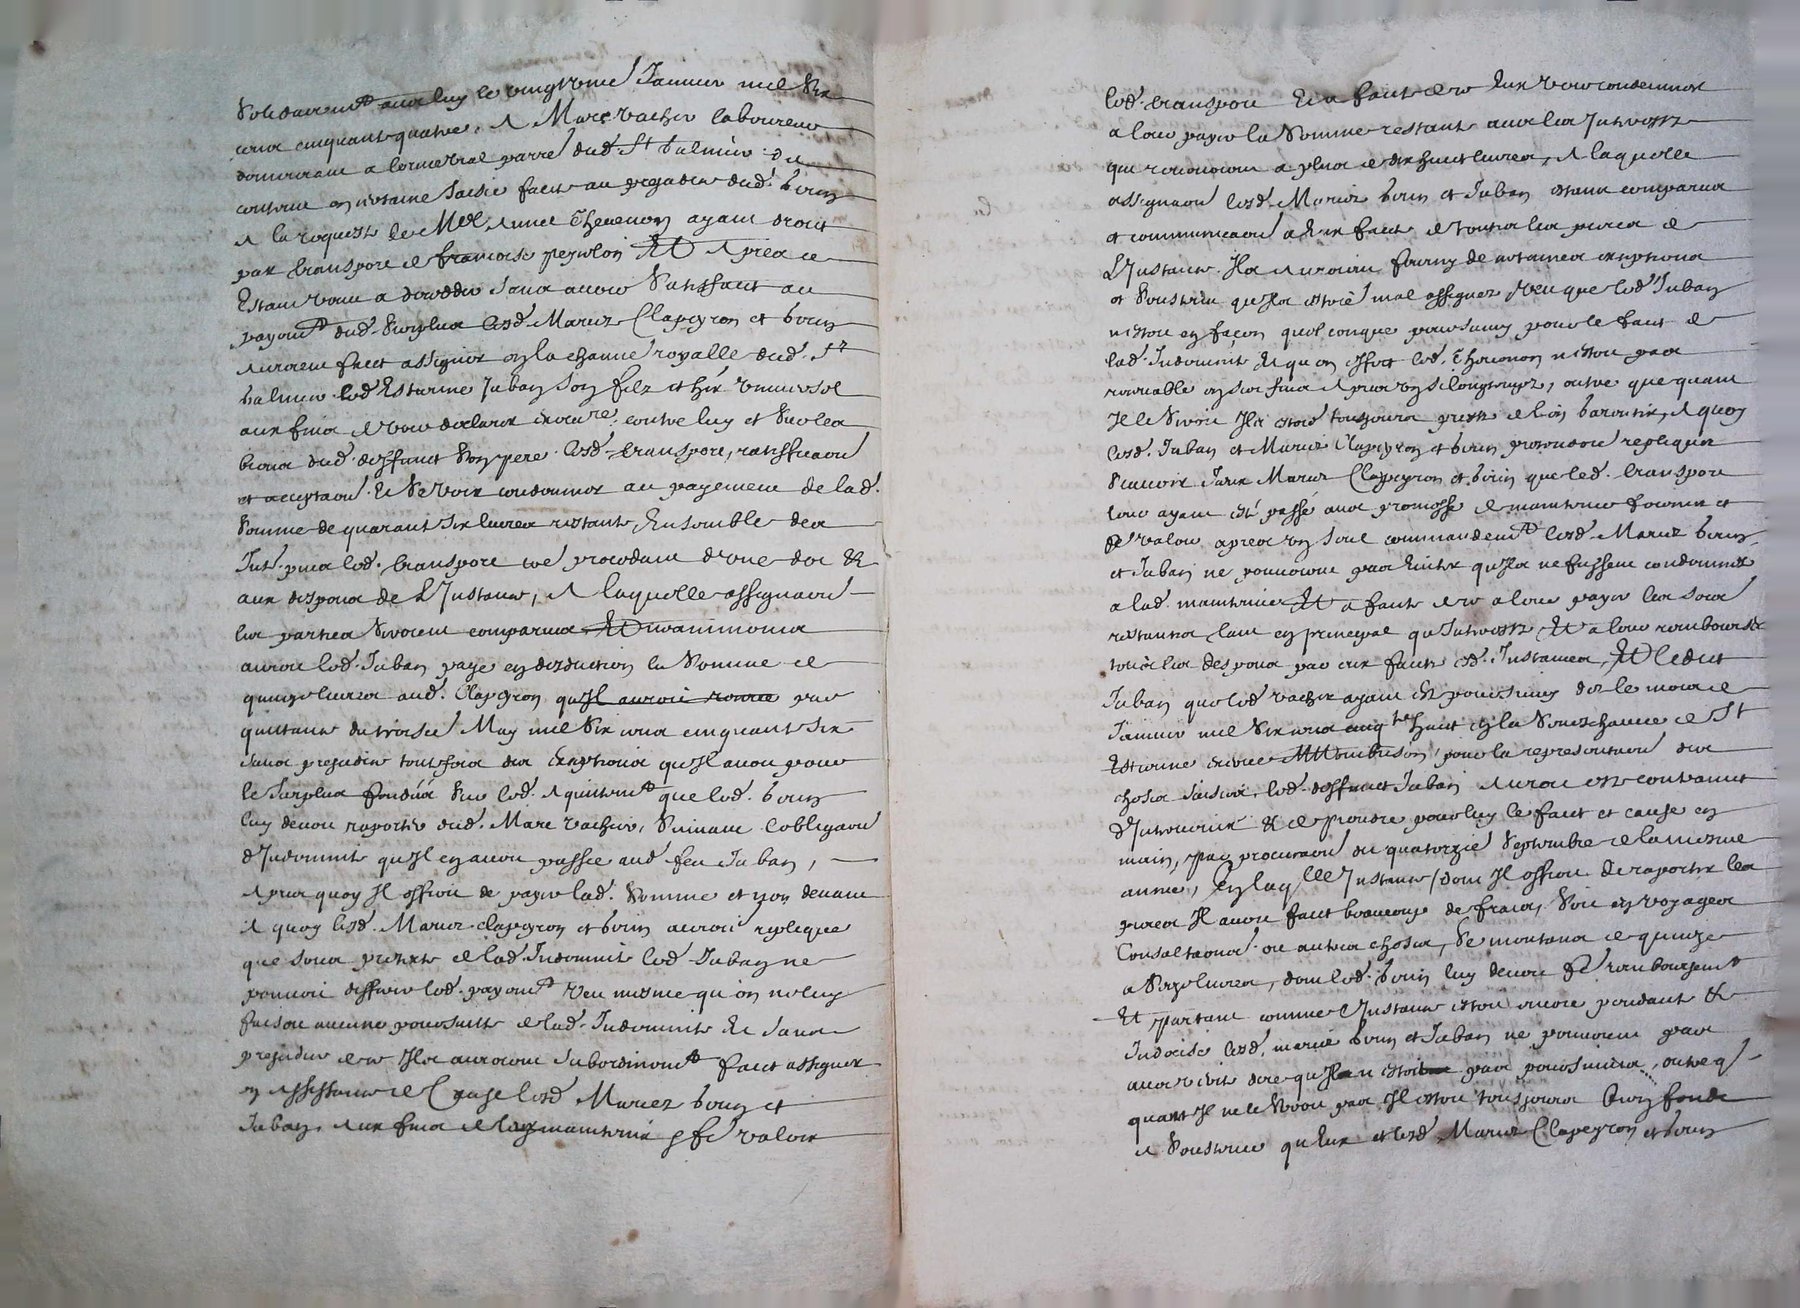 Solidairemt avec luy le vingtiesme Janvier mil six
cens cinquante quatre, A Marc vacher laboureur
demeurant a parre dud. St balmier du
contenu en certaine saisie faicte au prejudice dud. bouin
A la requeste de Mre Anne Thevenon ayant droict
par transport de francoise peyrelon Et Apres ce
Estant venu a deceddé sans avoir satisfaict au
payemt dud. surplus lesd. Mariez Clapeyron et bouin
Auroient faict assigner en la channe royalle dud. St
balmier led. Estienne Juban son filz et hér universel
aux fins de veoir declarer execre contre luy et sur les
biens dud. deffunct son pere lesd. transport, ratiffication
et acceptaon. Et se veoir condamner au payement de lad.
somme de quarante six livres restante, Ensemble des
Int. puis led. transport procedant d'une dot Et
aux despens de L'Instance, A laquelle assignaon
les parties seroient comparues Et neanmoings
auroit led. Juban payé en desduction la somme de
quinze livres aud. Clapeyron qu'Il auroit par
quittance du troisie May mil six cens cinquante six
sans prejudice touteffois des exceptions qu'Il avoit pour
le surplus fondées sur led. Aquittemt que led. bouin
luy devoit raporter dud. Marc vacher, suivant l'obligaon
d'Indemnité qu'Il en avoit passée aud feu Juban,
Apres quoy Il offroit de payer lad. somme et non devant
A quoy lesd. Mariez clapeyron et bouin auroient replique
que soubz pretexte de lad. Indemnité led. Juban ne
pouvoit differer led. payemt veu mesme qu'on ne luy
faisoit aucune poursuitte de lad. Indemnité Et sans
prejudice de ce Ilz auroient subordinemt faict assigner
en Assistance de Cause lesd. Mariez bouin et
Juban, Aux fins de leur maintenir et fe valoir
led. transport Et a faute de ce Eux veoir condemner
a leur payer la somme restante avec les Interestz
que revenoient a plus de dix huict livres, A laquelle
assignaon lesd. Mariez bouin et Juban estans comparus
et communicaon a Eux faicte de toutes les pieces de
L'Instance. Ilz Auroient fourny de certaines exceptions
et soustenu qu'Ilz estoiẽt mal assignez, veu que led. Juban
n'estoit en façon quelconque poursuivy pour le faict de
lad. Indemnité Et qu'en effect led. Thevenon n'estoit pas
recevable en ses fins Apres un si longtemps, outre que quant
Il le seroit Ilz estoiẽt tousjours prestz de l'en garentir, A quoy
lesd. Juban et Mariez Clapeyron et bouin pretendoit repliquer
Scavoir Iceux Mariez Clapeyron et bouin que led. transport
leur ayant esté passé avec promesse de maintenir fournir et
fe valoir apres un seul commandemt lesd. Mariez bouin
et Juban ne pouvoient pas Eviter qu'Ilz ne fussent condamnez
a lad. maintenue Et a faute de ce a leur payer les sommes
restantes tant en principal qu'Interestz Et a leur rembourser
tous les despens par eux faictz esd. Instances, Et ledict
Juban que led. vacher ayant esté poursuivy dez le mois de
Janvier mil six cens cinqte huict en la seneschaucé de St
Estienne pour la representaon des
choses saisies, led. deffunct Juban Auroit esté contrainct
d'Intervenir Et de prendre pour luy le faict et cause en
main, par procuraon du quatorzie Septembre de la mesme
année, En laqlle Instance / dont Il offroit de raporter les
pieces Il avoit faict beaucoup de fraicz, soit en voyages
Consultaons ou autres choses, se montans de quinze
a seize livres, dont led. bouin luy devoit fe remboursemt
Et partant comme l'Instance estoit encore pendante Et
Indecise lesd. mariez bouin et Juban ne pouvoient pas
avec verité dire qu'Il n'estoit pas poursuivis, outre q'
quant Il ne le seroit pas Il estoit tousjours bien fondé
A soustenir qu'Eux et lesd. Mariez Clapeyron et bouin